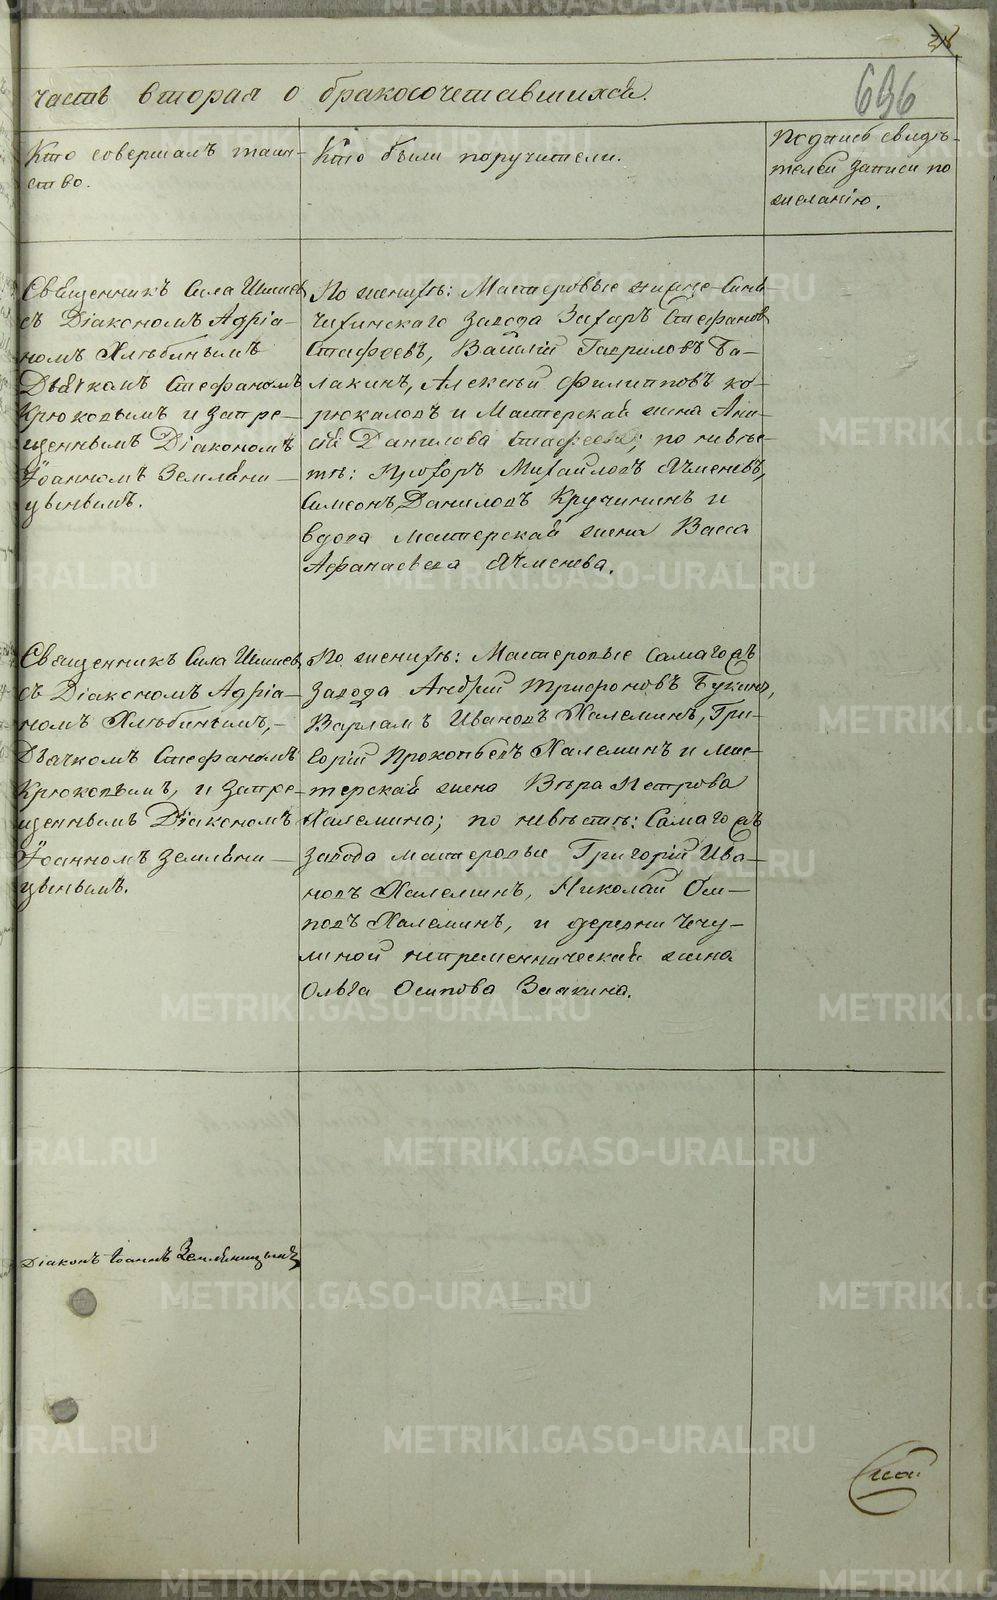 часть вторая о бракосочетавшихся.
696
Кто совершалъ таин-
ство.
Кто были поручители.
Подпись свидѣ-
телей записи по
желанію.
Священникъ Сила Шишев
съ Діакономъ Адріа-
номъ Хлѣбинымъ
Дьячкомъ Стефаномъ
Крюковымъ и запре-
щеннымъ Діакономъ
Іоанномъ Земляни-
цынымъ.
По женихѣ: Мастеровые нижне-Синя-
чихинскаго завода Захаръ Стефановъ
Стафеевъ, Василій Гавриловъ Ба-
лакинъ, Алексѣй Филипповъ Ко-
рюкаловъ и Мастерская жена
Данилова Стафеева; по невѣс-
тѣ: Прохоръ Михайловъ Ячменевъ,
Симеонъ Даниловъ Кручининъ и
вдова мастерская жена Васса
Афанасьева Ячменева.
Священникъ Сила Шишев
съ Діакономъ Адріа-
номъ Хлѣбинымъ,
Дьячкомъ Стефаномъ
Крюковымъ, и запре-
щеннымъ Діакономъ
Іоанномъ Земляни-
цынымъ.
По женихѣ: Мастеровые Самагожъ
завода Андрей Трифоновъ Букинъ,
Варламъ Ивановъ Халеминъ, Гри-
горій Прокопьевъ Халеминъ и Мас-
терская жена Вѣра Петрова
Халемина; по невѣстѣ: Самагожъ
завода мастеровые Григорій Ива-
новъ Халеминъ, Николай Оси-
повъ Халеминъ, и деревни Чечу-
линой непременническая жена
Ольга Осипова Заякина.
Діаконъ Іоаннъ Земляницынъ
METRIKI.GASO-URAL.RU